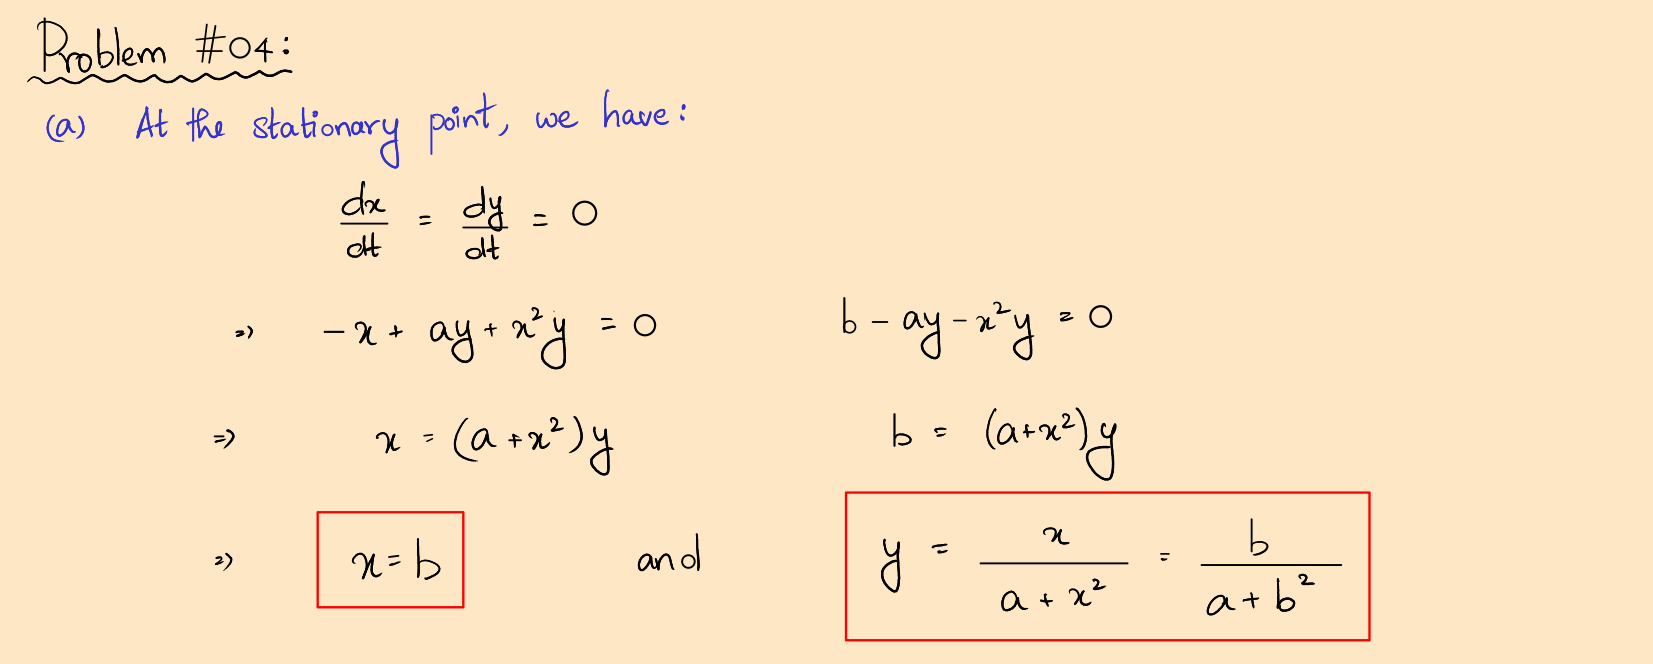 Problem #04:
(a) At the stationary point, we have:
dx/dt = dy/dt = 0
=> -x + ay + x²y = 0    b - ay - x²y = 0
=> x = (a + x²)y    b = (a+x²)y
=> x = b and y = x/(a + x²) = b/(a + b²)